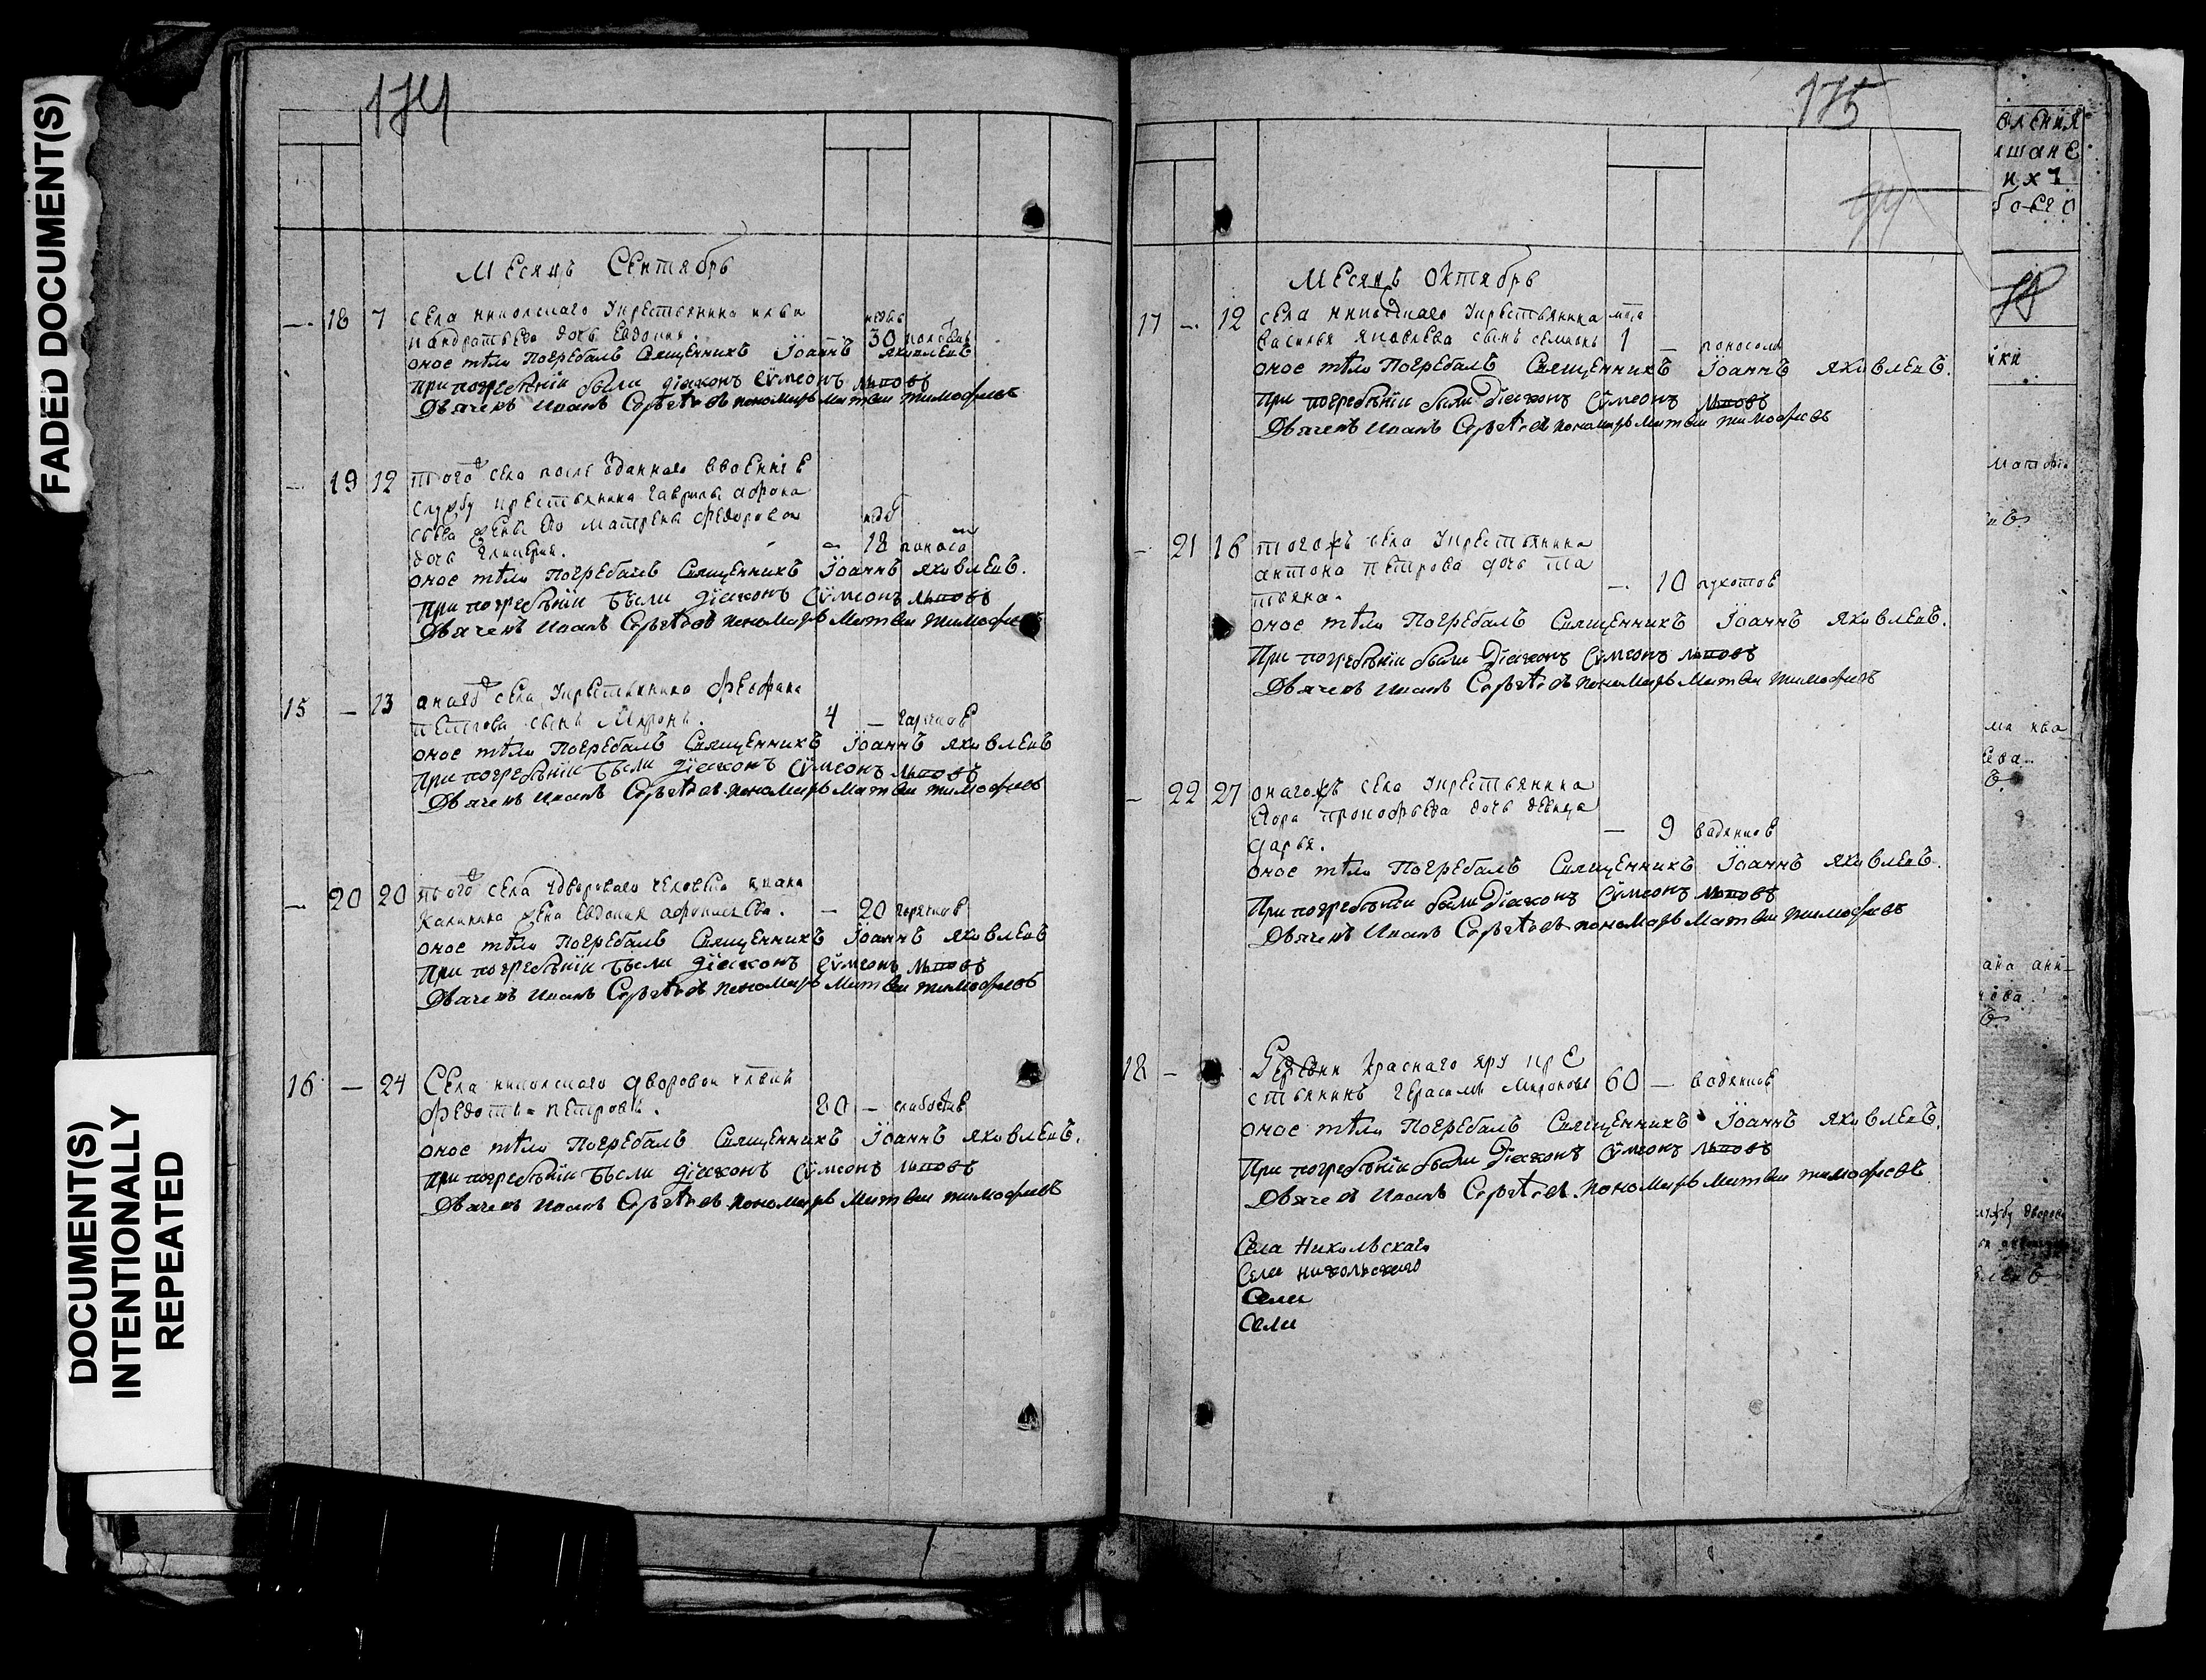 FADED DOCUMENT(S)
DOCUMENT(S)
INTENTIONALLY
REPEATED
174
Месяцъ Сентябрь
— 18 7 села николского Укрестьянина ильи
кандратьева дочь Евдокия недѣль 30
оное тѣло Погребалъ Священникъ Iоаннъ яковлевъ
При погребѣнiи были дiаконъ Сѵмеонъ
Дьячекъ Иванъ Сергѣевъ пономарь Матвеи тимофеевъ
— 19 12 того села после ѡданнаго ввоенние
службу крестьянина гаврилы афона
сьева жены его матрены федоровои
дочь гликерия. — 18 поноса
оное тѣло Погребалъ Священникъ Iоаннъ яковлевъ.
При погребѣнiи были дiаконъ Сѵмеонъ
Дьячекъ Иванъ Сергѣевъ пономарь Матвеи тимофеевъ
15 — 13 онаго села Укрестьянина феофана
петрова сынъ Миронъ. 4 — горячкое
оное тѣло Погребалъ Священникъ Iоаннъ яковлевъ
При погребѣнiи были дiаконъ Сѵмеонъ
Дьячекъ Иванъ Сергѣевъ пономарь Матвеи тимофеевъ
— 20 20 того села Удвороваго человека
калинина жена Евдокия — 20 горячкое
оное тѣло Погребалъ Священникъ Iоаннъ яковлевъ
При погребѣнiи были дiаконъ Сѵмеонъ
Дьячекъ Иванъ Сергѣевъ пономарь Матвеи тимофеевъ
16 — 24 Села николского дворовои
Федотъ петровъ. 80 — слабостие
оное тѣло Погребалъ Священникъ Iоаннъ яковлевъ.
При погребѣнiи были дiаконъ Сѵмеонъ
Дьячекъ Иванъ Сергѣевъ пономарь Матвеи тимофеевъ
175
Месяцъ Октябрь
17 — 12 села николского Укрестьянина
василья яковлева сынъ семионъ 1 — поносомъ
оное тѣло Погребалъ Священникъ Iоаннъ яковлевъ.
При погребѣнiи были Дiаконъ Сѵмеонъ
Дьячекъ Иванъ Сергѣевъ пономарь Матвеи тимофеевъ
— 21 16 тогожъ села Укрестьянина
антона петрова дочь та
тияна. — 10 сухотое
оное тѣло Погребалъ Священникъ Iоаннъ яковлевъ.
При погребѣнiи были Дiаконъ Сѵмеонъ
Дьячекъ Иванъ Сергѣевъ пономарь Матвеи тимофеевъ
— 22 27 онагожъ села Укрестьянина
Егора прокофьева дочь девица
дарья. — 9 водянкое
оное тѣло Погребалъ Священникъ Iоаннъ яковлевъ.
При погребѣнiи были Дiаконъ Сѵмеонъ
Дьячекъ Иванъ Сергѣевъ пономарь Матвеи тимофеевъ
18 — Красного яру кре
стьянинъ герасимъ Миронове 60 — водянкое
оное тѣло Погребалъ Священникъ Iоаннъ яковлевъ.
При погребѣнiи были Дiаконъ Сѵмеонъ
Дьячекъ Иванъ Сергѣевъ пономарь Матвеи тимофеевъ
Села Никольскаго
Села никольскаго
Села
Села